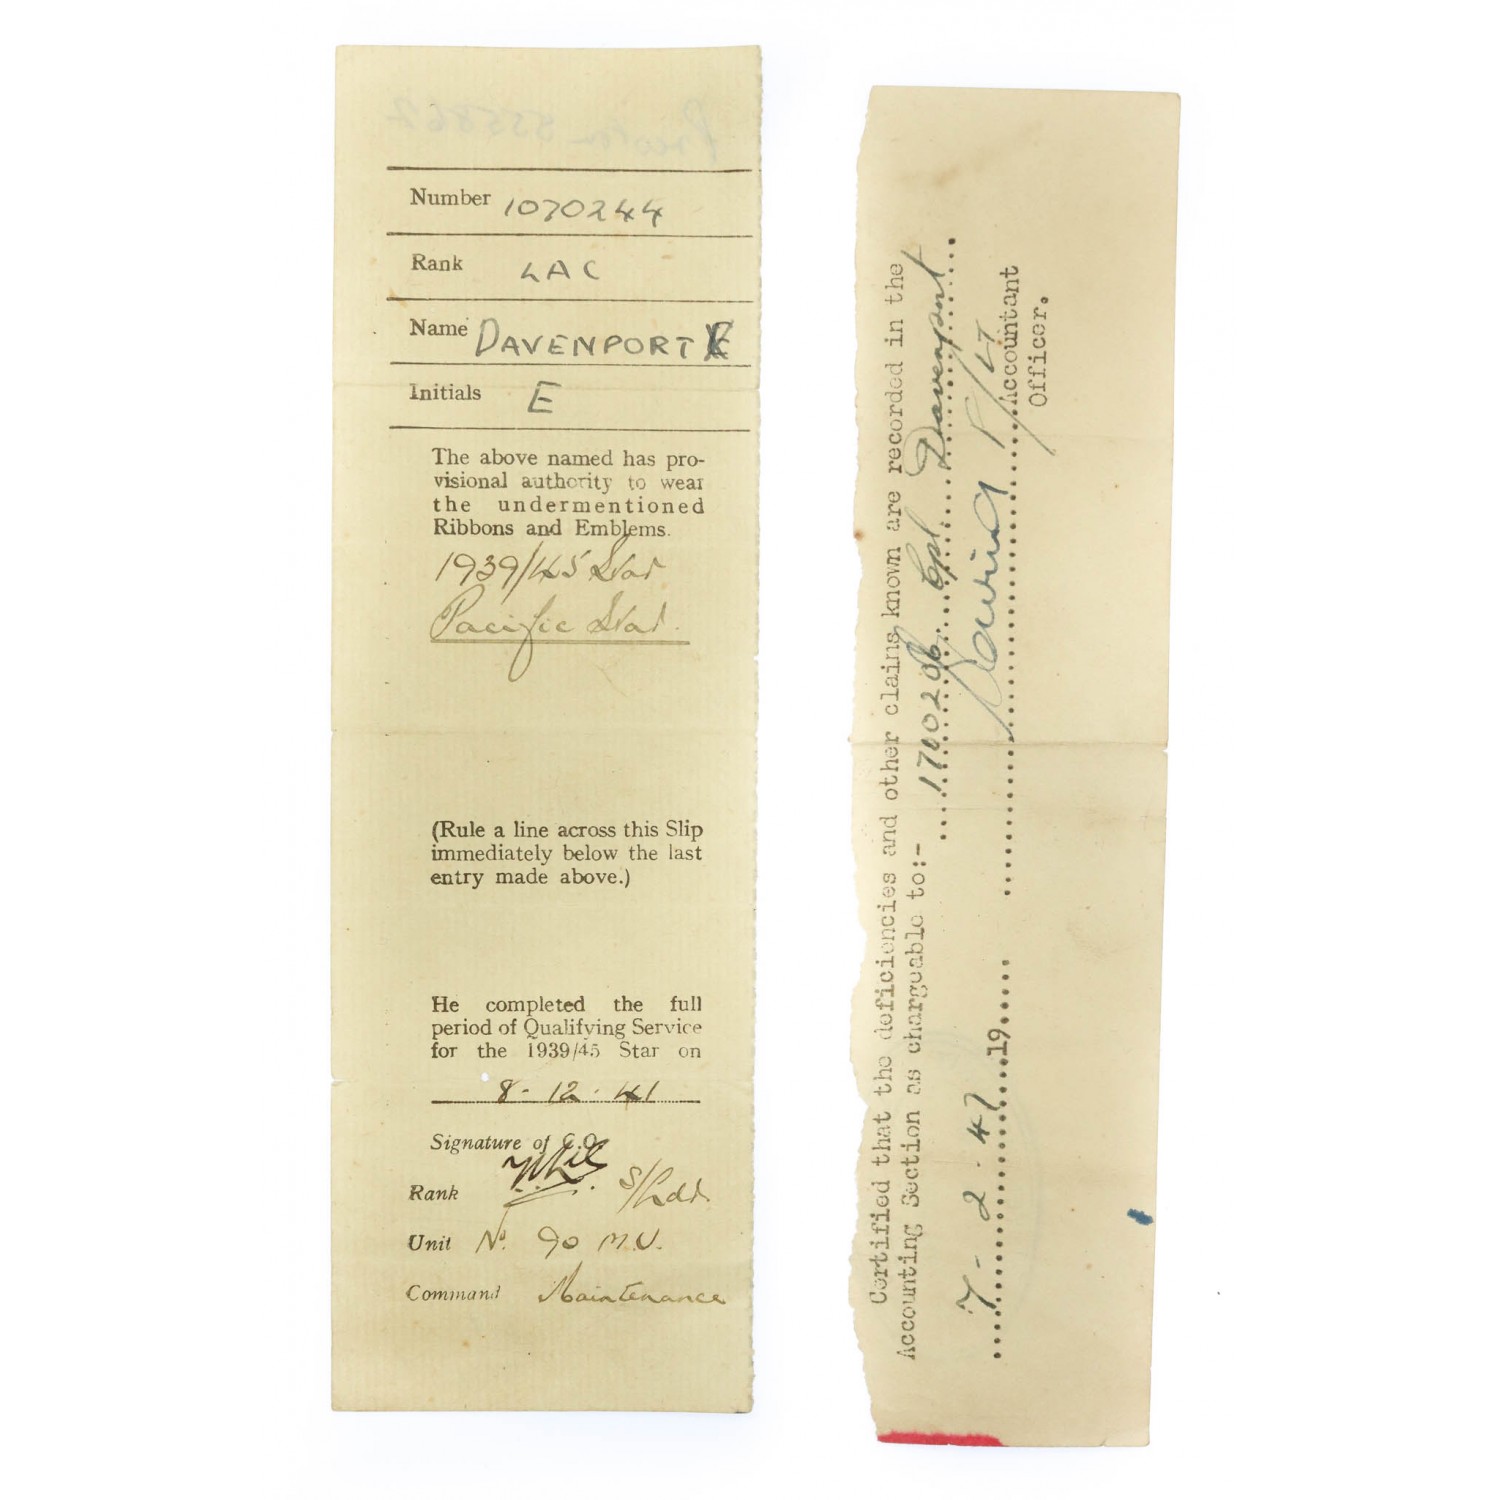 Number 1070244
Rank LAC
Name DAVENPORT
Initials E
The above named has pro-
visional authority to wear
the undermentioned
Ribbons and Emblems.
1939/45 Star
Pacific Star.
(Rule a line across this Slip
immediately below the last
entry made above.)
He completed the full
period of Qualifying Service
for the 1939/45 Star on
8-12-41
Signature of C.O.
Rank S/Ldr.
Unit No. 90 M.U.
Command Maintenance
Certified that the deficiencies and other claims known are recorded in the
Accounting Section as chargeable to:-
1700206 Cpl. Davenport
F/Lt
7-2-47 19..... Accountant
Officer.